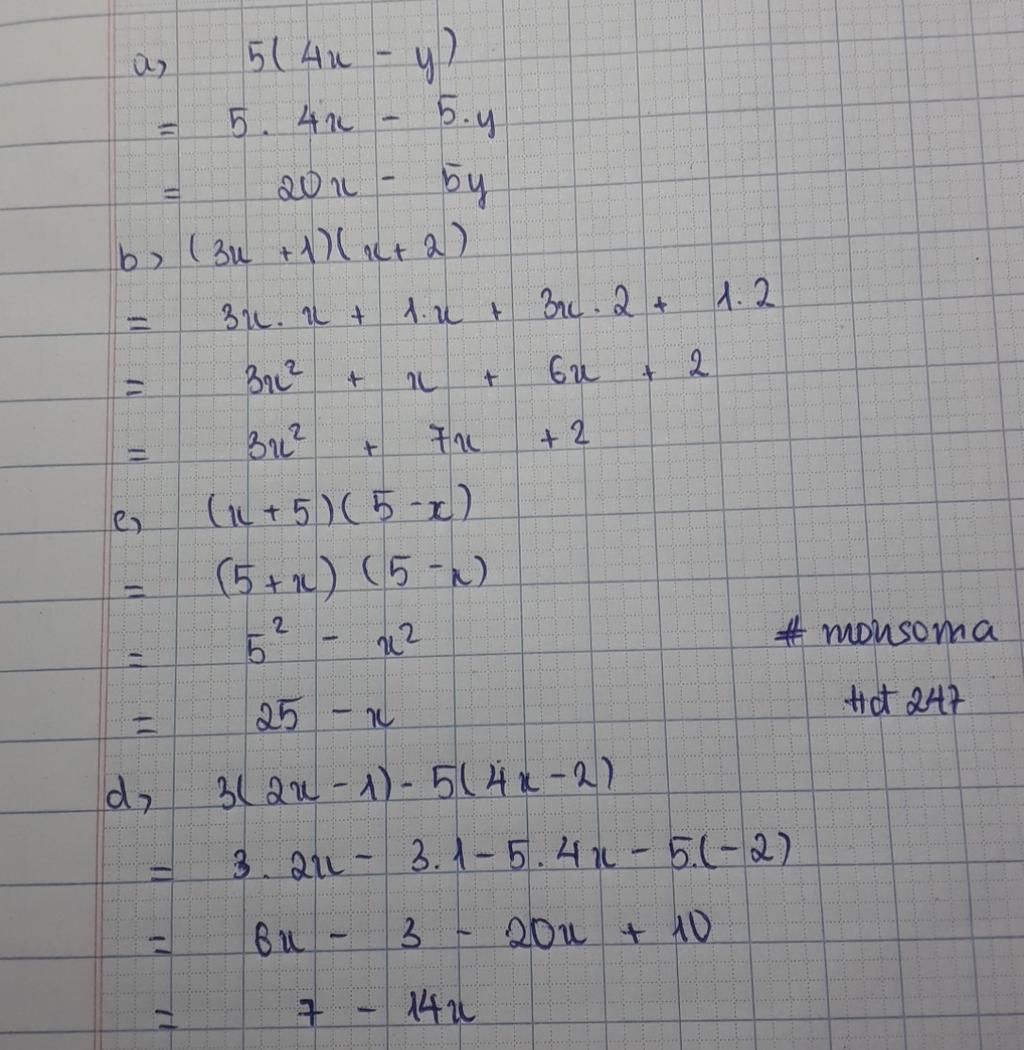 a, 5(4x - y)
= 5. 4x - 5.y
= 20x - 5y
b, (3x + 1)(x + 2)
= 3x. x + 1.x + 3x. 2 + 1.2
= 3x² + x + 6x + 2
= 3x² + 7x + 2
c, (x + 5)(5 - x)
= (5 + x) (5 - x)
= 5² - x²
= 25 - x
# monsoma
hdt 247
d, 3(2x - 1) - 5(4x - 2)
= 3. 2x - 3.1 - 5. 4x - 5.(-2)
= 6x - 3 - 20x + 10
= 7 - 14x